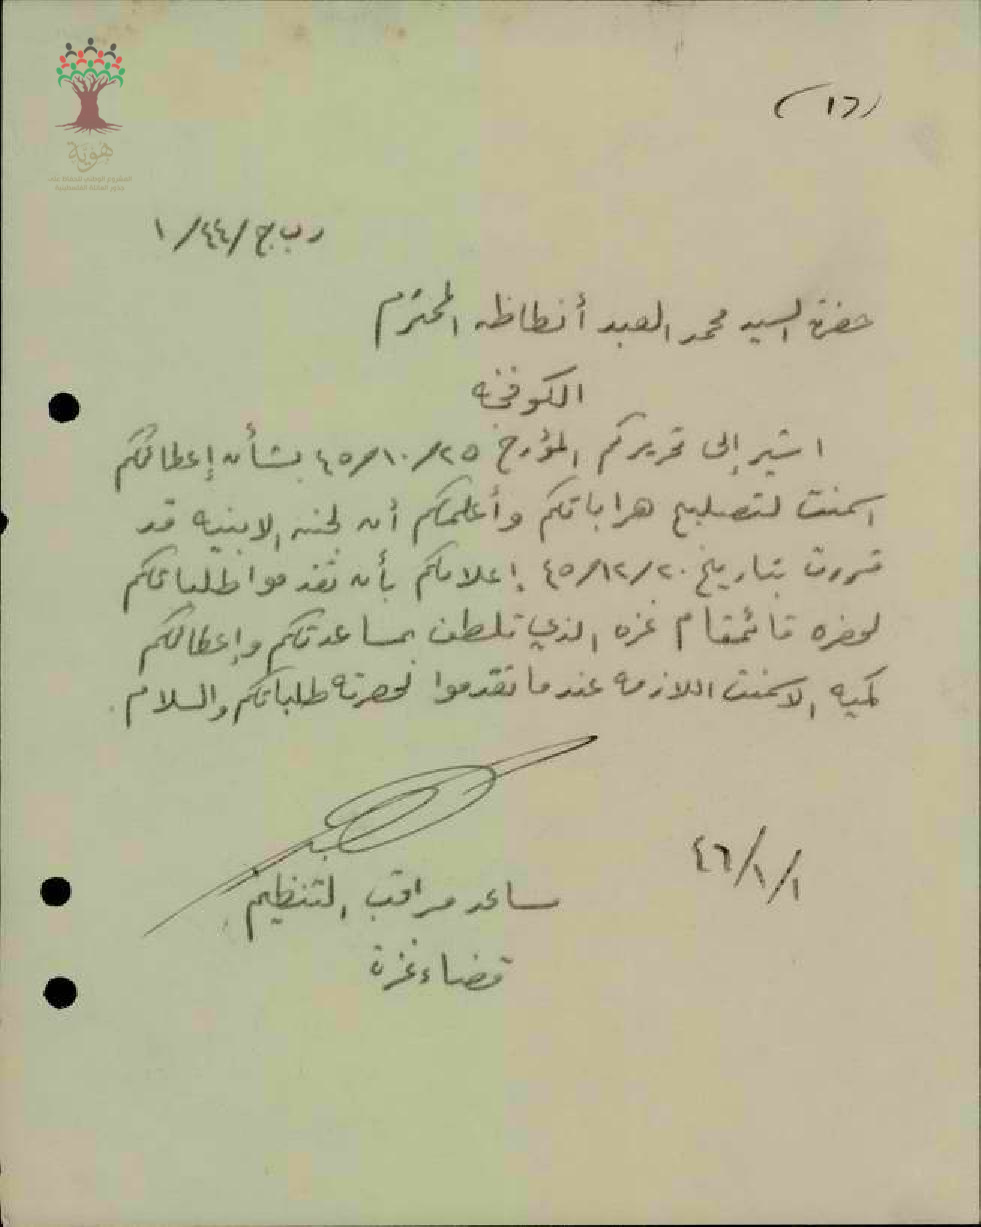 هوية
المشروع الوطني للحفاظ على
جذور العائلة الفلسطينية
(١٦)
ر ب ج/٤٤/١
حضرة السيد محمد العبد أنطاظه المحترم
الكوفخه
اشير إلى تحريركم المؤرخ ٤٥/١٠/٢٥ بشأن إعطائكم
اسمنت لتصليح هراباتكم وأعلمكم أن لجنة الابنيه قد
قررت بتاريخ ٤٥/١٢/٢٠ إعلامكم بأن تقدموا طلباتكم
لحضره قائمقام غزه الذي تلطف بمساعدتكم وإعطائكم
كميه الاسمنت اللازمه عندما تقدموا لحضرته طلباتكم والسلام.
٤٦/١/١
مساعد مراقب التنظيم
قضاء غزة